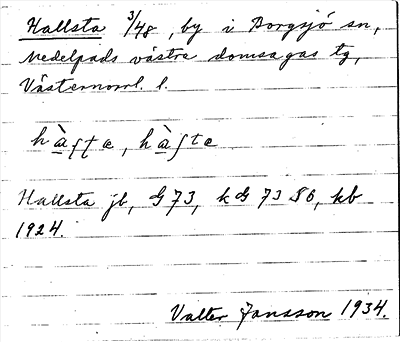 Hallsta 3/48, by i Borgsjö sn,
Medelpads västra domsagas tg,
Västernorrl. l.
hàſtæ, hàſtæ
Hallsta jb, G 73, kG 73 S6, kb
1924.
Valter Jansson 1934.